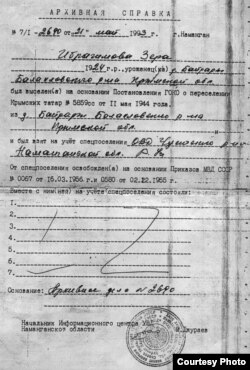 АРХИВНАЯ СПРАВКА
№ 7/I-2640 от "21" май 1993 г. г.Наманган
Ибрагимова Зера
1924 г.р., уроженец(ка) д. Байдары
Балаклавского р-на Крымской обл.
был выселен(а) на основании Постановления ГОКО о переселении
Крымских татар № 5859сс от II мая 1944 года
из д. Байдары Балаклавского р-на
Крымской обл.
и был взят на учёт спецпоселения ОВД
Наманганской обл.
От спецпоселения освобожден(а) на основании Приказов МВД СССР
№ 0067 от 16.03.1956.г и 0580 от 02.12.1955 г.
Вместе с ним(ней) на учёте спецпоселения состояли:
1.
2.
3.
4.
5.
6.
7.
Основание: Архивное дело №2640
Начальник Информационного центра УВД
Наманганской области
Courtesy Photo